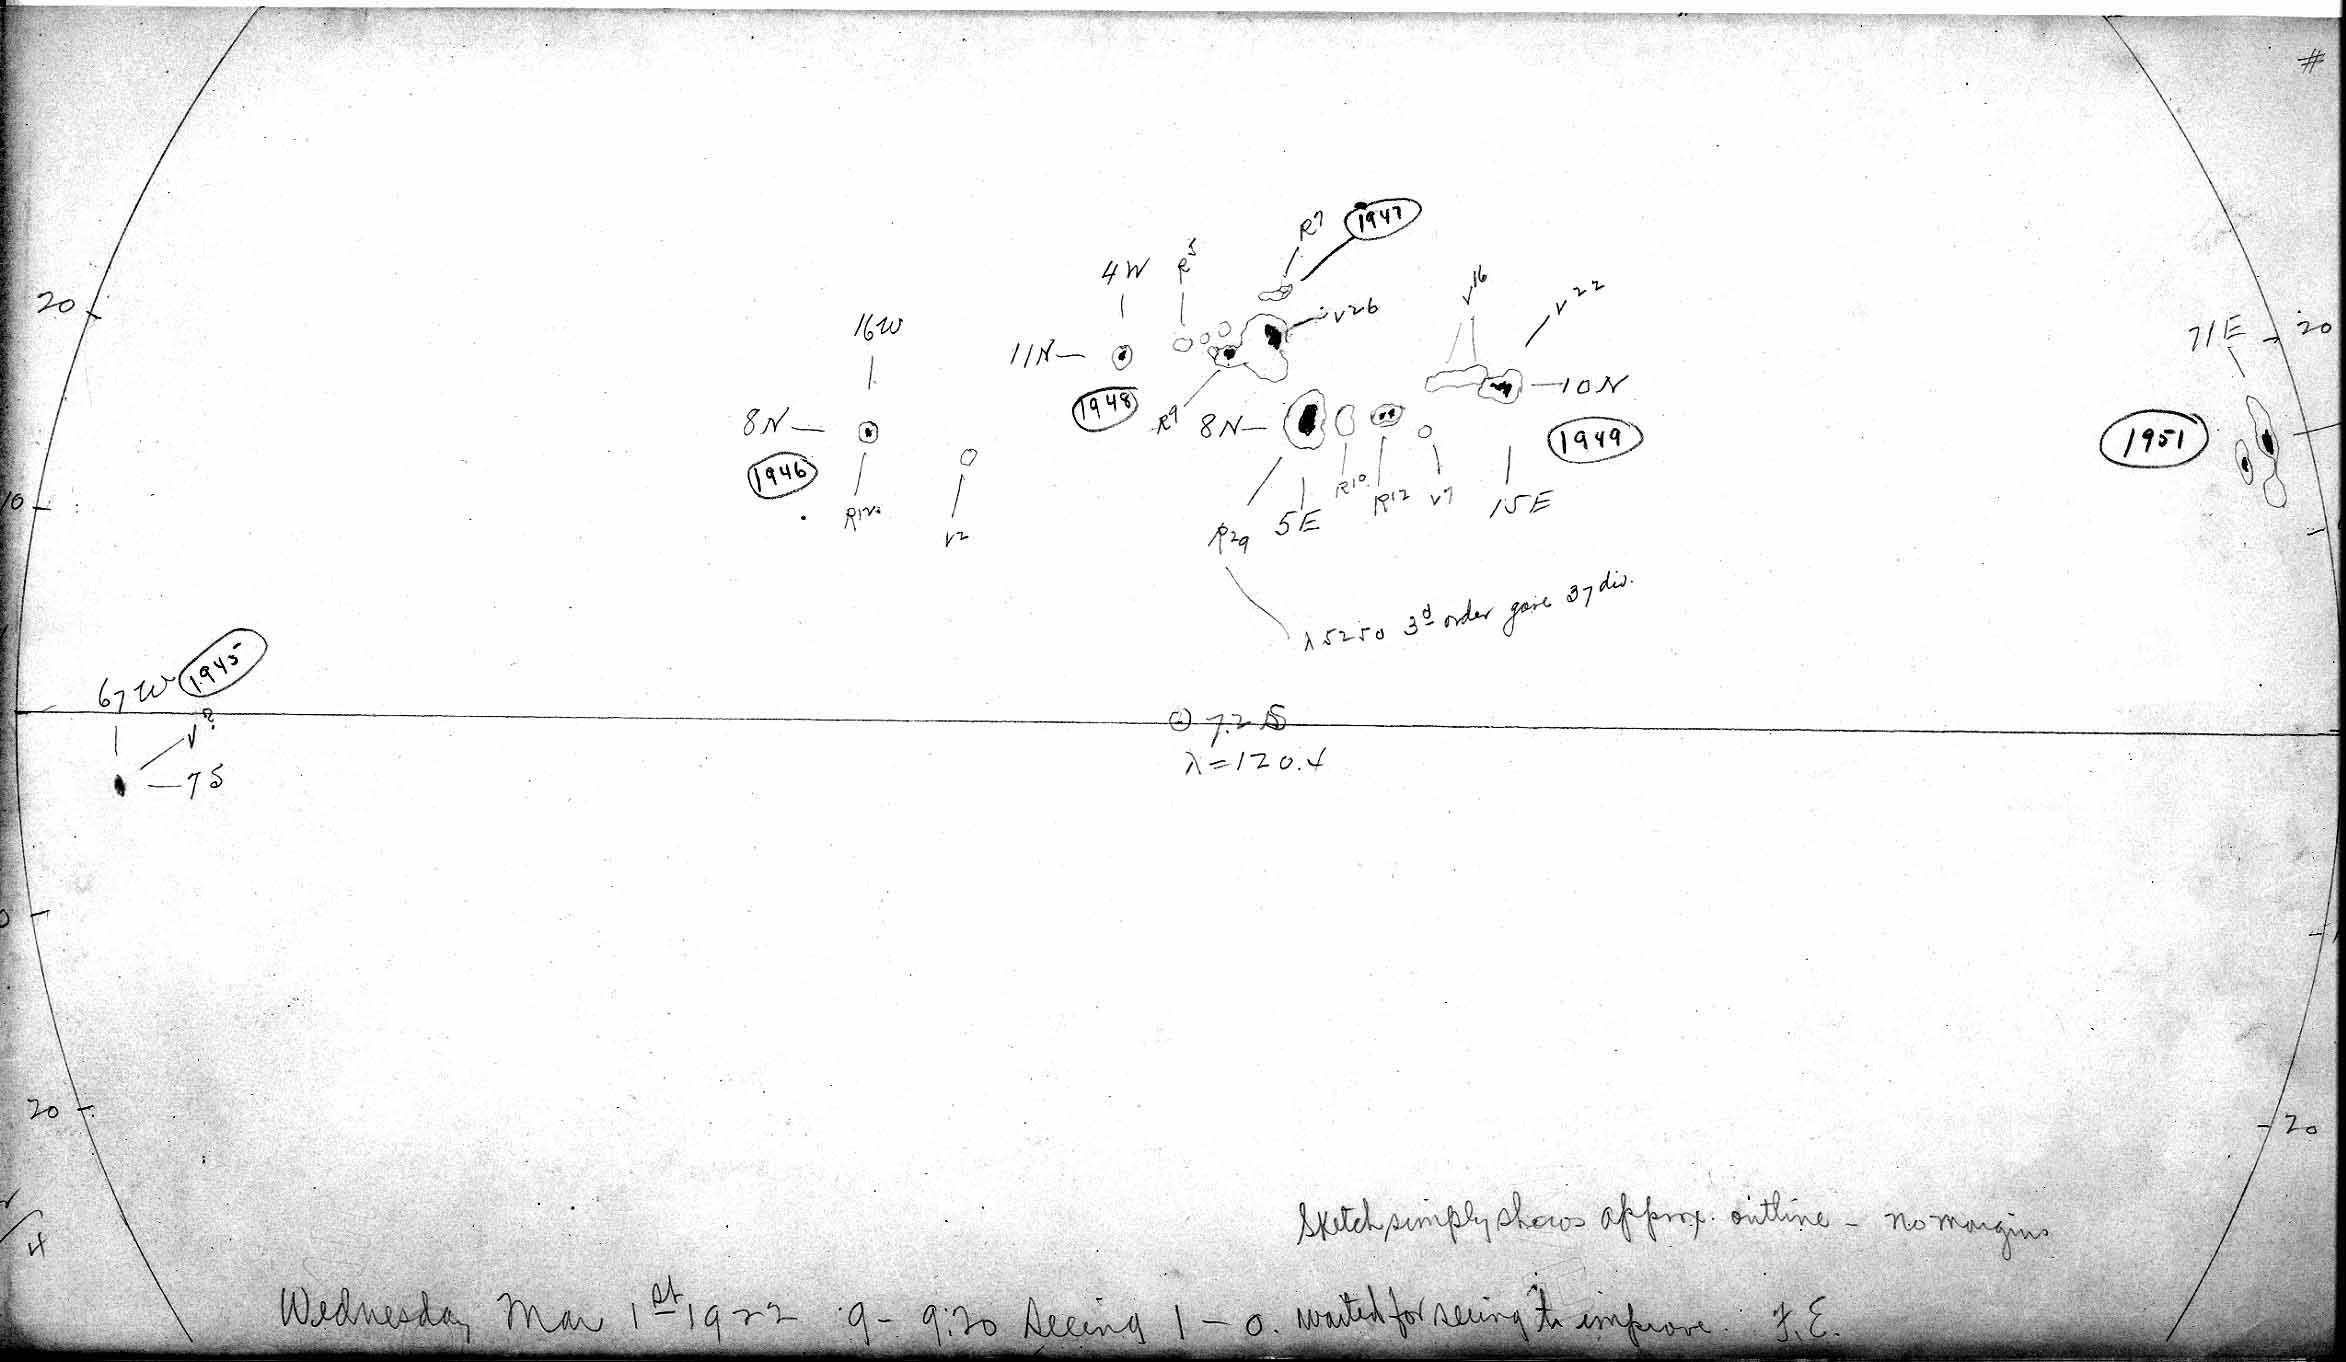 #
1947
R7
R5
4W
V16
V22
20
V26
16W
71E
20
11N
10N
1948
R9
8N
8N
1949
1951
1946
10
R12
V2
R29
5E
R10
R12
V7
15E
λ5250 3d order gave 37 div.
67W
1945
V?
7S
⊙ 7.2 S
λ=120.4
0
20
20
4
Sketch simply shows approx. outline - no margins
Wednesday Mar 1st 1922 9 - 9:20 Seeing 1 - 0. waited for seeing to improve. F.E.